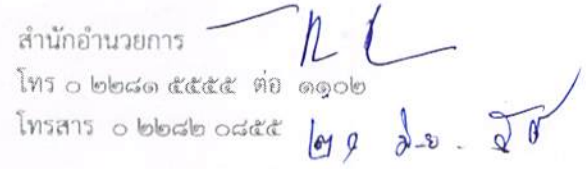 สำนักอำนวยการ
โทร ๐ ๒๒๘๑ ๕๕๕๕ ต่อ ๑๑๐๒
โทรสาร ๐ ๒๒๘๒ ๐๘๕๕
๒๑ มิ.ย.